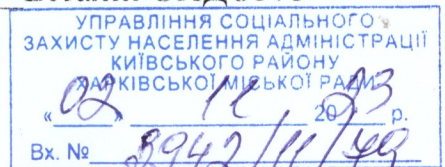 УПРАВЛІННЯ СОЦІАЛЬНОГО
ЗАХИСТУ НАСЕЛЕННЯ АДМІНІСТРАЦІЇ
КИЇВСЬКОГО РАЙОНУ
ХАРКІВСЬКОЇ МІСЬКОЇ РАДИ
«02» 11 2023 р.
Вх. № 3942/11/79